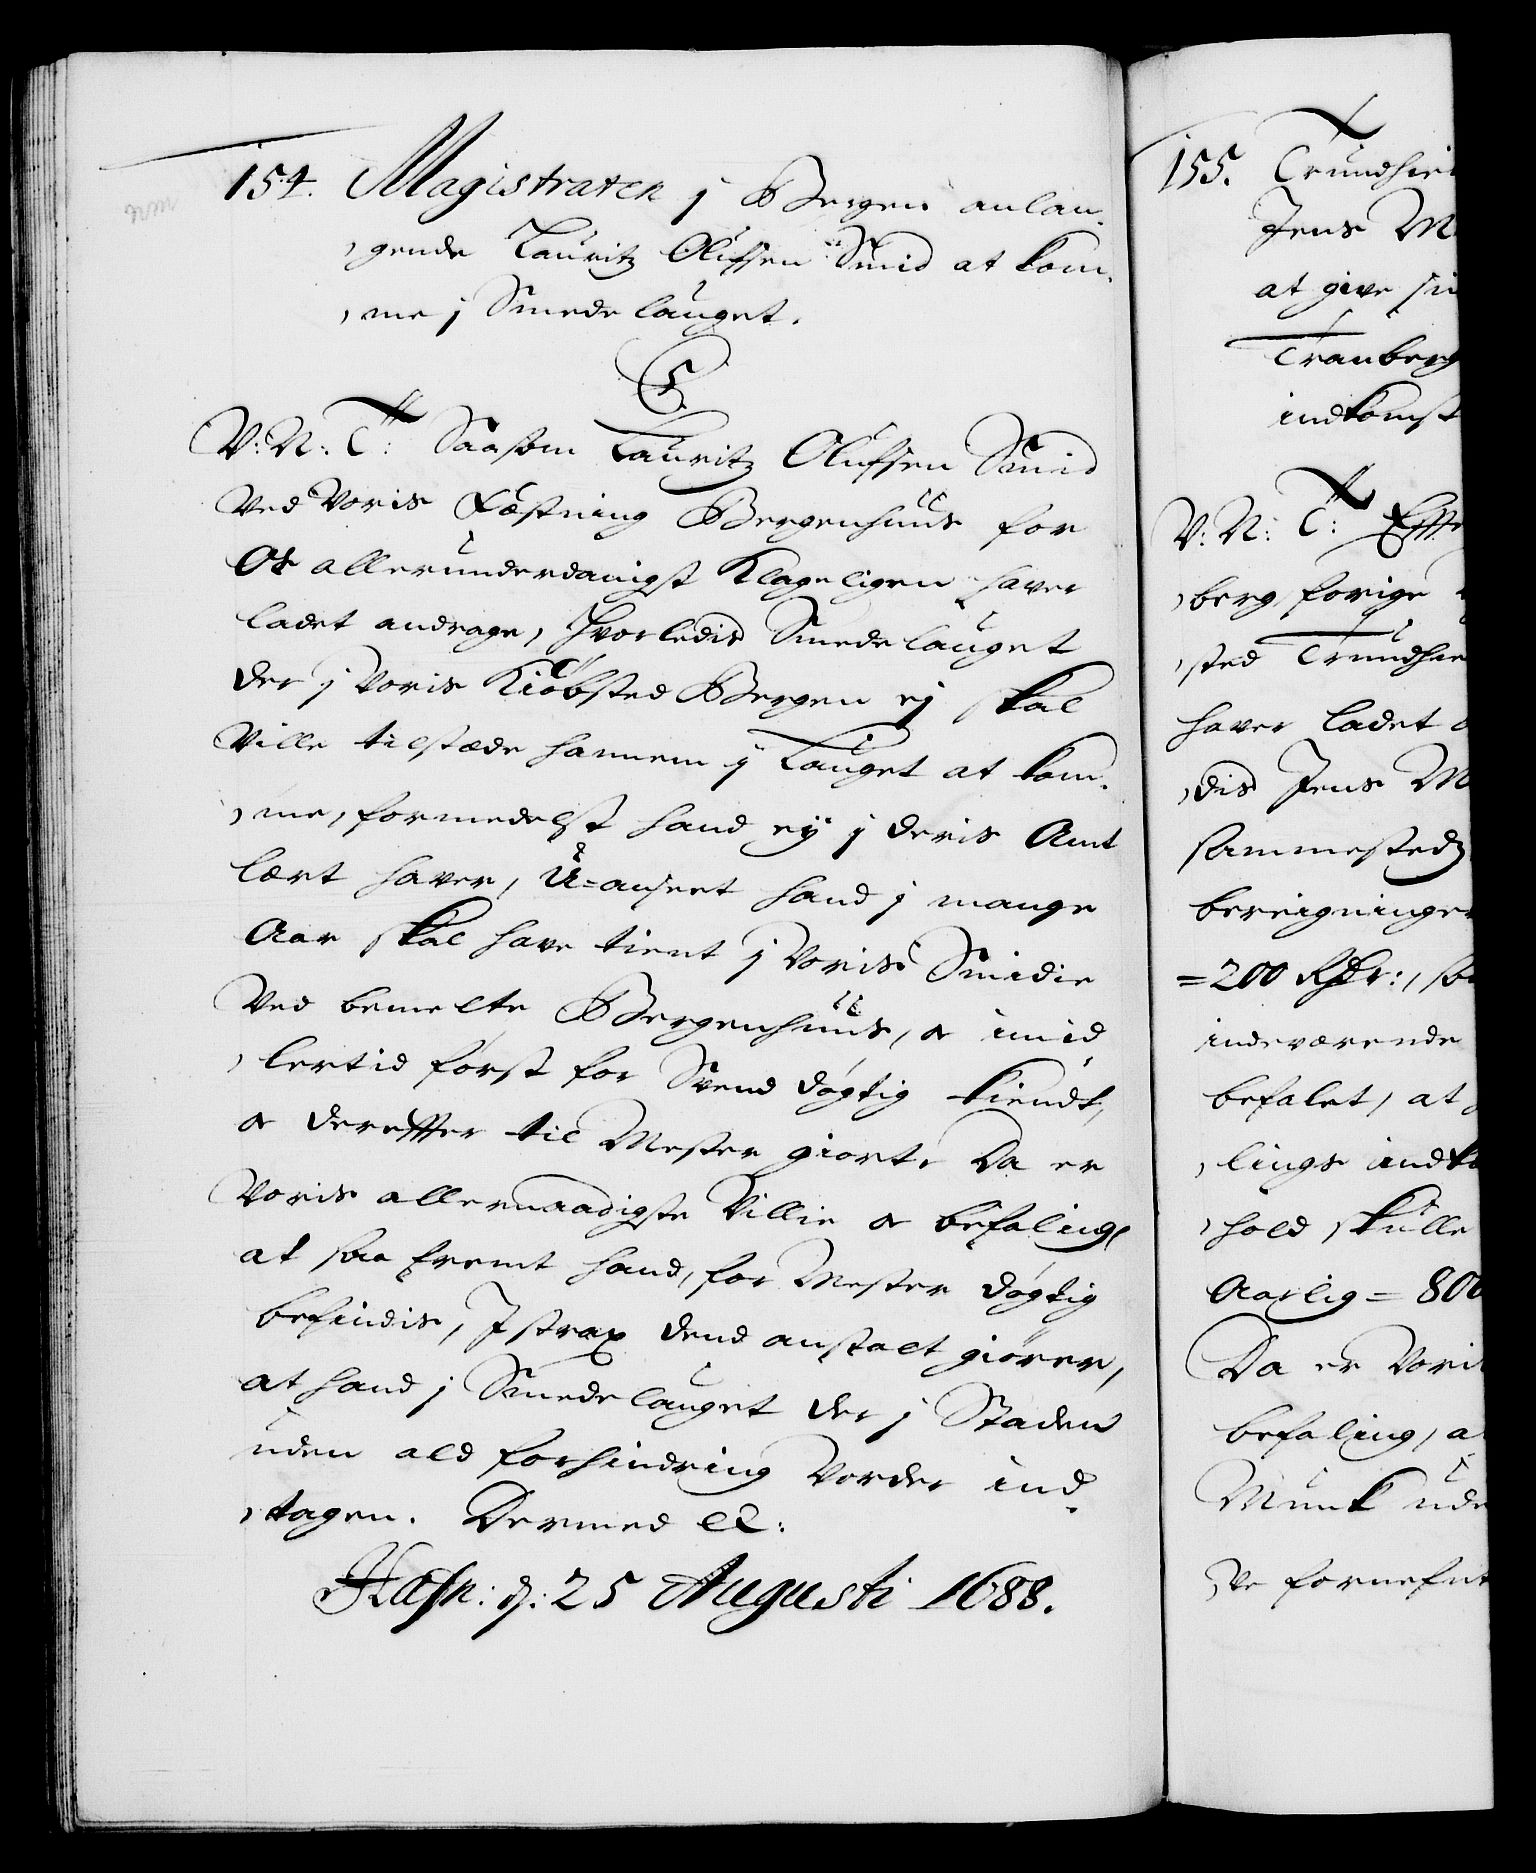 154. Magistraten j Bergen anlan-
gende Lauritz Olufsen Smid at kom-
me j Smede lauget.
C5.
V: N: T: Saasom Lauritz Olufsen Smid
Ved Voris Fæstning Bergenhuus for
Os allerunderdanigst Klageligen haver
ladet andrage, Hvorledis Smede lauget
der j Voris Kiøbsted Bergen ej skal
Ville tilstæde hannem ij Lauget at kom-
me, formedelst hand eij j deris Amt
lært haver, U=anseet hand j mange
Aar skal have tient j Voris Smidie
Ved bemelte Bergenhuus, og imid-
lertid først for Svend døgtig kiendt,
og dereffter til Mester giort. Da er
Voris allernaadigste Villie og befaling,
at saa fremt hand, for Mester døgtig
befindis, I strax dend anstalt giører,
at hand j Smede lauget der j Staden
uden ald forhindring Vorder ind-
tagen. Dermed etc:
Hafn: d: 25 Augusti 1688.
155. Trundhiem
Jens M
at give sin
Tranberg
indkomst
V: N: T: Effte
berg forige
sted Trundhie
haver ladet
dis Jens M
sammestedz
bereigninger
=200 Rdr:, so
indeværende
befalet, at
lings indko
hold skulle
Aarlig = 800
Da er Voris
befaling, a
Munk ude
ve fornefnt